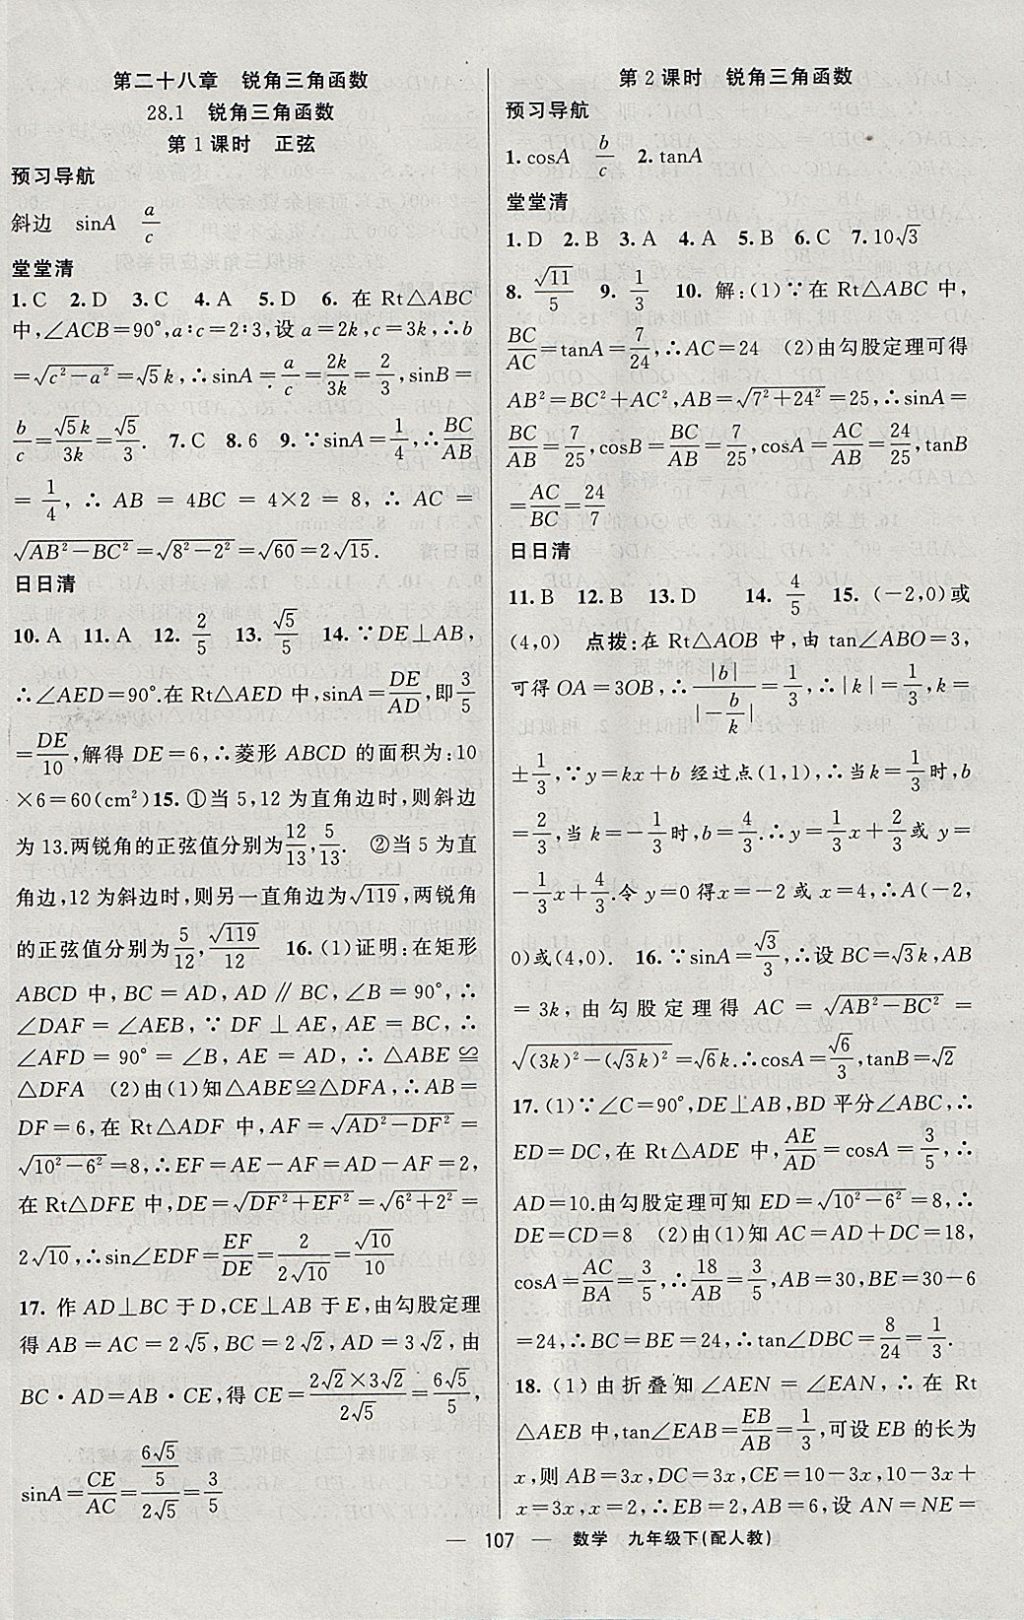 第二十八章　锐角三角函数
28.1　锐角三角函数
第1课时　正弦
预习导航
斜边　sinA　a/c
堂堂清
1. C　2. D　3. C　4. A　5. D　6. 在 Rt△ABC
中,∠ACB=90°,a∶c=2∶3,设 a=2k,c=3k,∴b
=√(c²-a²)=√5k,∴sinA=a/c=2k/3k=2/3,sinB=
b/c=√5k/3k=√5/3.　7. C　8. 6　9. ∵sinA=1/4,∴BC/AB
=1/4,∴AB=4BC=4×2=8,∴AC=
√(AB²-BC²)=√(8²-2²)=√60=2√15.
日日清
10. A　11. A　12. 2/5　13. √5/5　14. ∵DE⊥AB,
∴∠AED=90°.在 Rt△AED 中,sinA=DE/AD,即3/5
=DE/10,解得 DE=6,∴菱形 ABCD 的面积为:10
×6=60(cm²) 15. ①当 5,12 为直角边时,则斜边
为 13.两锐角的正弦值分别为12/13,5/13.　②当 5 为直
角边,12 为斜边时,则另一直角边为√119,两锐角
的正弦值分别为5/12,√119/12　16. (1)证明:在矩形
ABCD 中,BC=AD,AD∥BC,∠B=90°,∴
∠DAF=∠AEB,∵DF⊥AE,AE=BC,∴
∠AFD=90°=∠B,AE=AD,∴△ABE≌
△DFA　(2)由(1)知△ABE≌△DFA,∴AB=
DF=6,在 Rt△ADF 中,AF=√(AD²-DF²)=
√(10²-6²)=8,∴EF=AE-AF=AD-AF=2,
在 Rt△DFE 中,DE=√(DF²+EF²)=√(6²+2²)=
2√10,∴sin∠EDF=EF/DE=2/(2√10)=√10/10
17. 作 AD⊥BC 于 D,CE⊥AB 于 E,由勾股定理
得 AB=AC=2√5,BC=2√2,AD=3√2,由
BC·AD=AB·CE,得 CE=(2√2×3√2)/(2√5)=6√5/5,
sinA=CE/AC=(6√5/5)/(2√5)=3/5
第2课时　锐角三角函数
预习导航
1. cosA　b/c　2. tanA
堂堂清
1. D　2. B　3. B　4. A　5. B　6. C　7. 10√3
8. √11/5　9. 1/3　10. 解:(1)∵在 Rt△ABC 中,
BC/AC=tanA=7/24,∴AC=24　(2)由勾股定理可得
AB²=BC²+AC²,AB=√(7²+24²)=25,∴sinA=
BC/AB=7/25,cosB=BC/AB=7/25,cosA=AC/AB=24/25,tanB
=AC/BC=24/7
日日清
11. B　12. B　13. D　14. 4/5　15. (-2,0)或
(4,0)　点拨:在 Rt△AOB 中,由 tan∠ABO=3,
可得 OA=3OB,∴|b|/|-b/k|=1/3,∴|k|=1/3,k=
±1/3,∵y=kx+b 经过点(1,1),∴当 k=1/3时,b
=2/3,当 k=-1/3时,b=4/3.∴y=1/3x+2/3或 y=
-1/3x+4/3.令 y=0 得 x=-2 或 x=4,∴A(-2,
0)或(4,0).　16. ∵sinA=√3/3,∴设 BC=√3k,AB
=3k,由勾股定理得 AC=√(AB²-BC²)=
√((3k)²-(√3k)²)=√6k.∴cosA=√6/3,tanB=√2
17. (1)∵∠C=90°,DE⊥AB,BD 平分∠ABC,∴
ED=DC,在 Rt△ADE 中,AE/AD=cosA=3/5,∴
AD=10.由勾股定理可知 ED=√(10²-6²)=8,∴
DE=CD=8　(2)由(1)知 AC=AD+DC=18,
cosA=AC/BA=3/5,∴18/AB=3/5,∴AB=30,BE=30-6
=24,∴BC=BE=24,∴tan∠DBC=8/24=1/3.
18. (1)由折叠知∠AEN=∠EAN,∴在 Rt
△AEB 中,tan∠EAB=EB/AB=1/3,可设 EB 的长为
x,则 AB=3x,DC=3x,CE=10-3x,10-3x+
x=3x,x=2,∴EB=2,AB=6,设 AN=NE=
— 107 —　数学　九年级下(配人教)